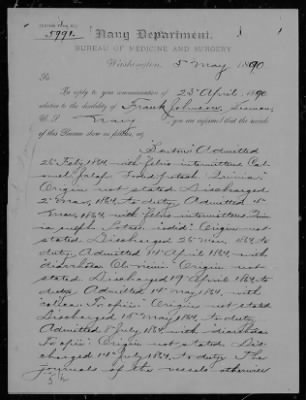 5991.
Navy Department,
BUREAU OF MEDICINE AND SURGERY
Washington, 5 May 1890
To
In reply to your communication of 23 April 1890
relative to the disability of Frank Johnson, Seaman,
U.S. Navy you are informed that the records
of this Bureau show as follows, viz:
Admitted
Feby 1864, with febris intermittens
Origin not stated Discharged
2 Mar, 1864, to duty Admitted
Mar, 1864, with febris intermittens.
Origin not
stated Discharged 25 Mar, 1864, to
duty Admitted 14 April 1864, with
diarrhoea Origin not
stated Discharged 19 April 1864, to
duty Admitted 14 May 1864, with
Origin not stated
Discharged 15 May 1864, to duty
Admitted 8 July 1864, with diarrhoea
Origin not stated Dis-
charged 14 July 1864, to duty The
journals of the vessels otherwise